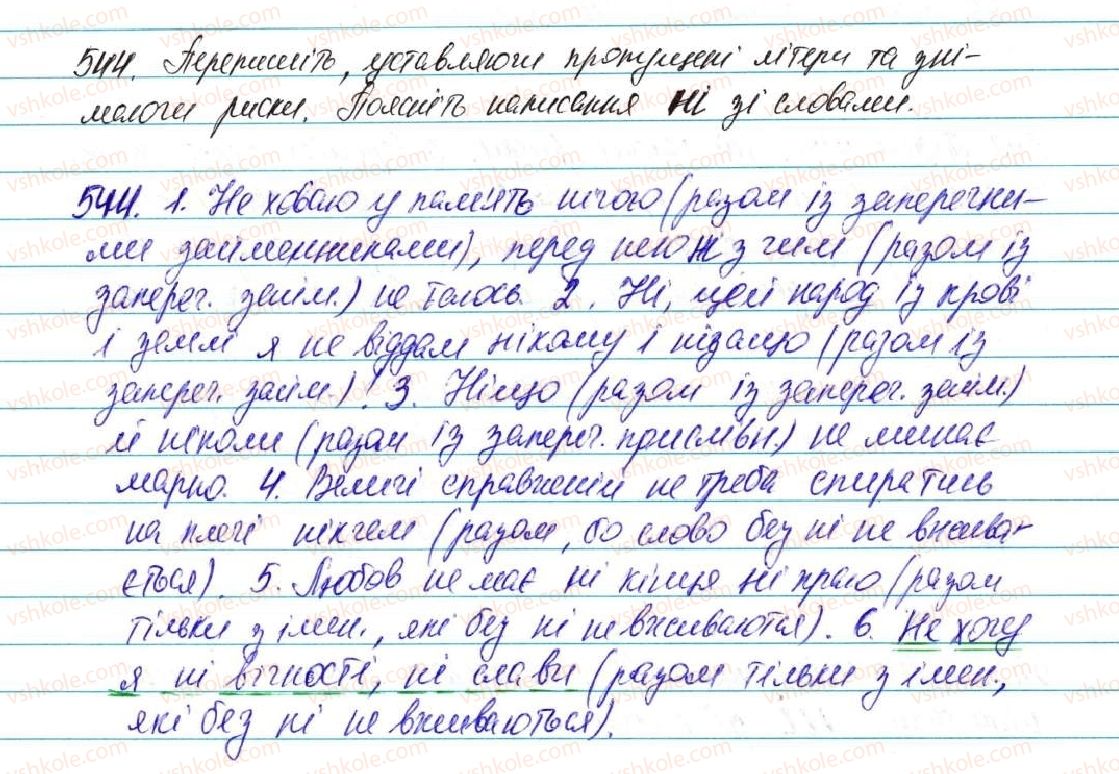 544. Перепишіть, уставляючи пропущені літери та зні-
маючи риски. Поясніть написання ні зі словами.
544. 1. Не ховаю у пам'ять нічого (разом із заперечни-
ми займенниками), перед нею ж з чим (разом із
запереч. займ.) не таюсь. 2. Ні, цей народ із крові
і землі я не віддам нікому і нізащо (разом із
запереч. займ.)! 3. Ніщо (разом із запереч. займ.)
й ніколи (разом із запереч. прислівн.) не минає
марно. 4. Велич справжній не треба спиратись
на плечі нікчем (разом, бо слово без ні не вжива-
ється). 5. Любов не має ні кінця ні краю (разом
тільки з імен., які без ні не вживаються). 6. Не хочу
я ні вічності, ні слави (разом тільки з імен.,
які без ні не вживаються).